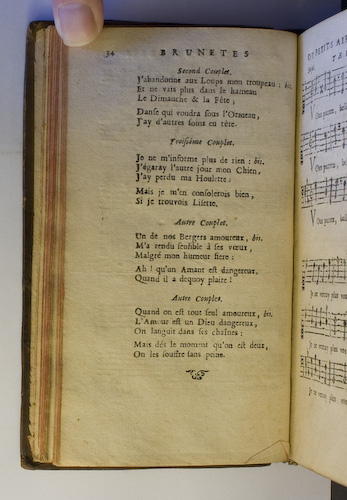 34 BRUNETES
Second Couplet.
J'abandonne aux Loups mon troupeau : bis.
Et ne vais plus dans le hameau
Le Dimanche & la Fête ;
Danse qui voudra sous l'Ormeau,
J'ay d'autres soins en tête.
Troisiéme Couplet.
Je ne m'informe plus de rien : bis.
J'égaray l'autre jour mon Chien,
J'ay perdu ma Houlette :
Mais je m'en consolerois bien,
Si je trouvois Lisette.
Autre Couplet.
Un de nos Bergers amoureux, bis.
M'a rendu sensible à ses vœux,
Malgré mon humeur fiere :
Ah ! qu'un Amant est dangereux,
Quand il a dequoy plaire !
Autre Couplet.
Quand on est tout seul amoureux, bis.
L'Amour est un Dieu dangereux,
On languit dans ses chaînes ;
Mais dés le moment qu'on est deux,
On les souffre sans peine.